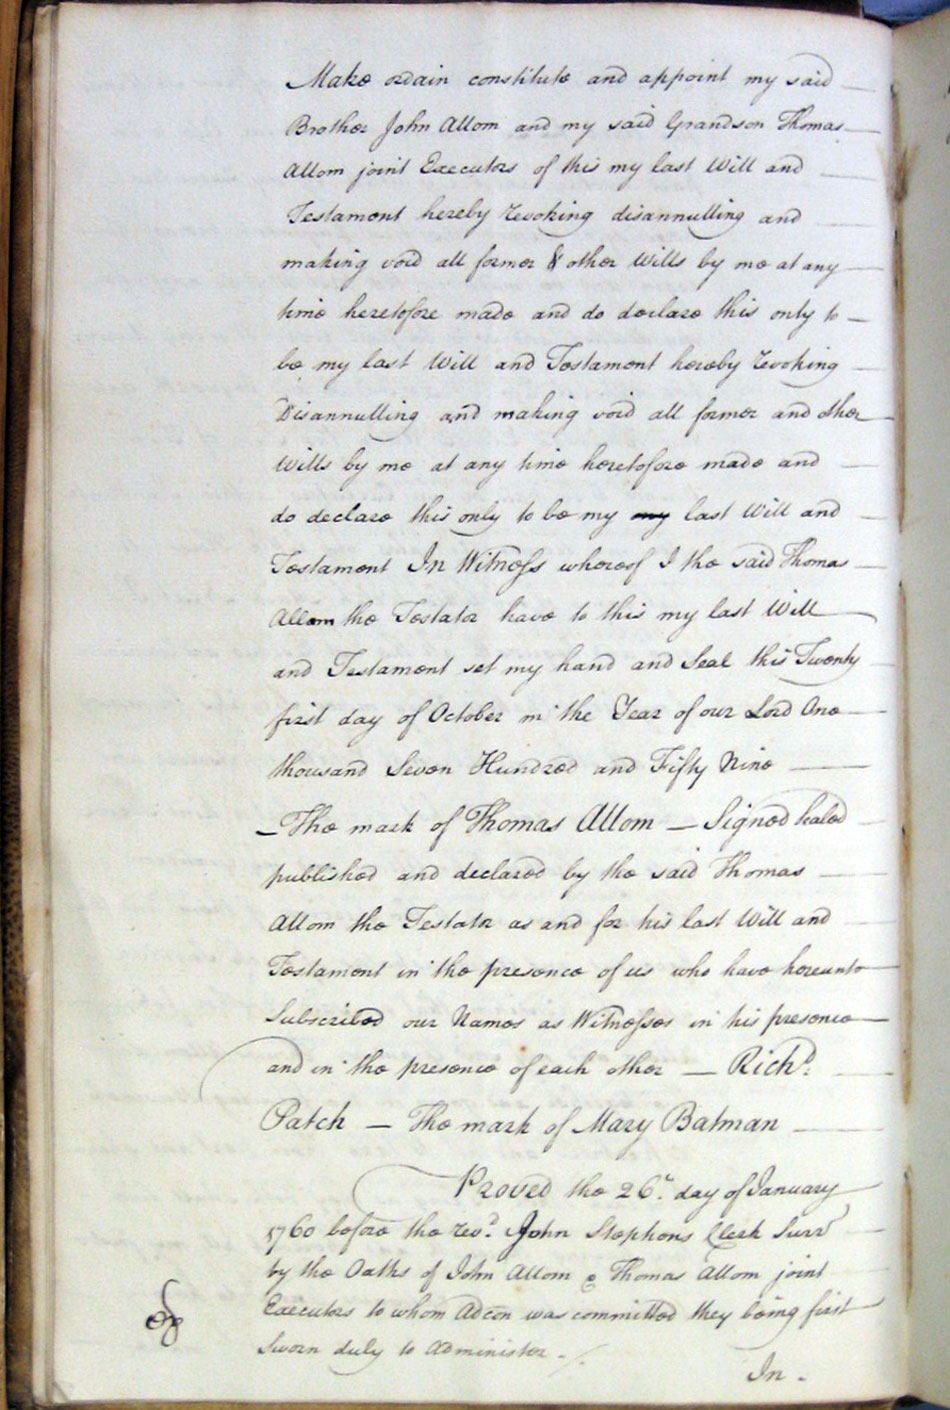 Make ordain constitute and appoint my said
Brother John Allom and my said Grandson Thomas
Allom joint Executors of this my last Will and
Testament hereby revoking disannulling and
making void all former & other Wills by me at any
time heretofore made and do declare this only to
be my last Will and Testament hereby revoking
Disannulling and making void all former and other
Wills by me at any time heretofore made and
do declare this only to be my my last Will and
Testament In Witness whereof I the said Thomas
Allom the Testator have to this my last Will
and Testament set my hand and Seal this Twenty
first day of October in the Year of our Lord One
thousand Seven Hundred and Fifty Nine
The mark of Thomas Allom — Signed Sealed
published and declared by the said Thomas
Allom the Testator as and for his last Will and
Testament in the presence of us who have hereunto
Subscribed our Names as Witnesses in his presence
and in the presence of each other — Richd.
Patch — The mark of Mary Batman
Proved the 26th. day of January
1760 before the Revd. John Stephens Clerk Surr
by the Oaths of John Allom & Thomas Allom joint
Executors to whom Adcon was committed they being first
Sworn duly to Administer.
In